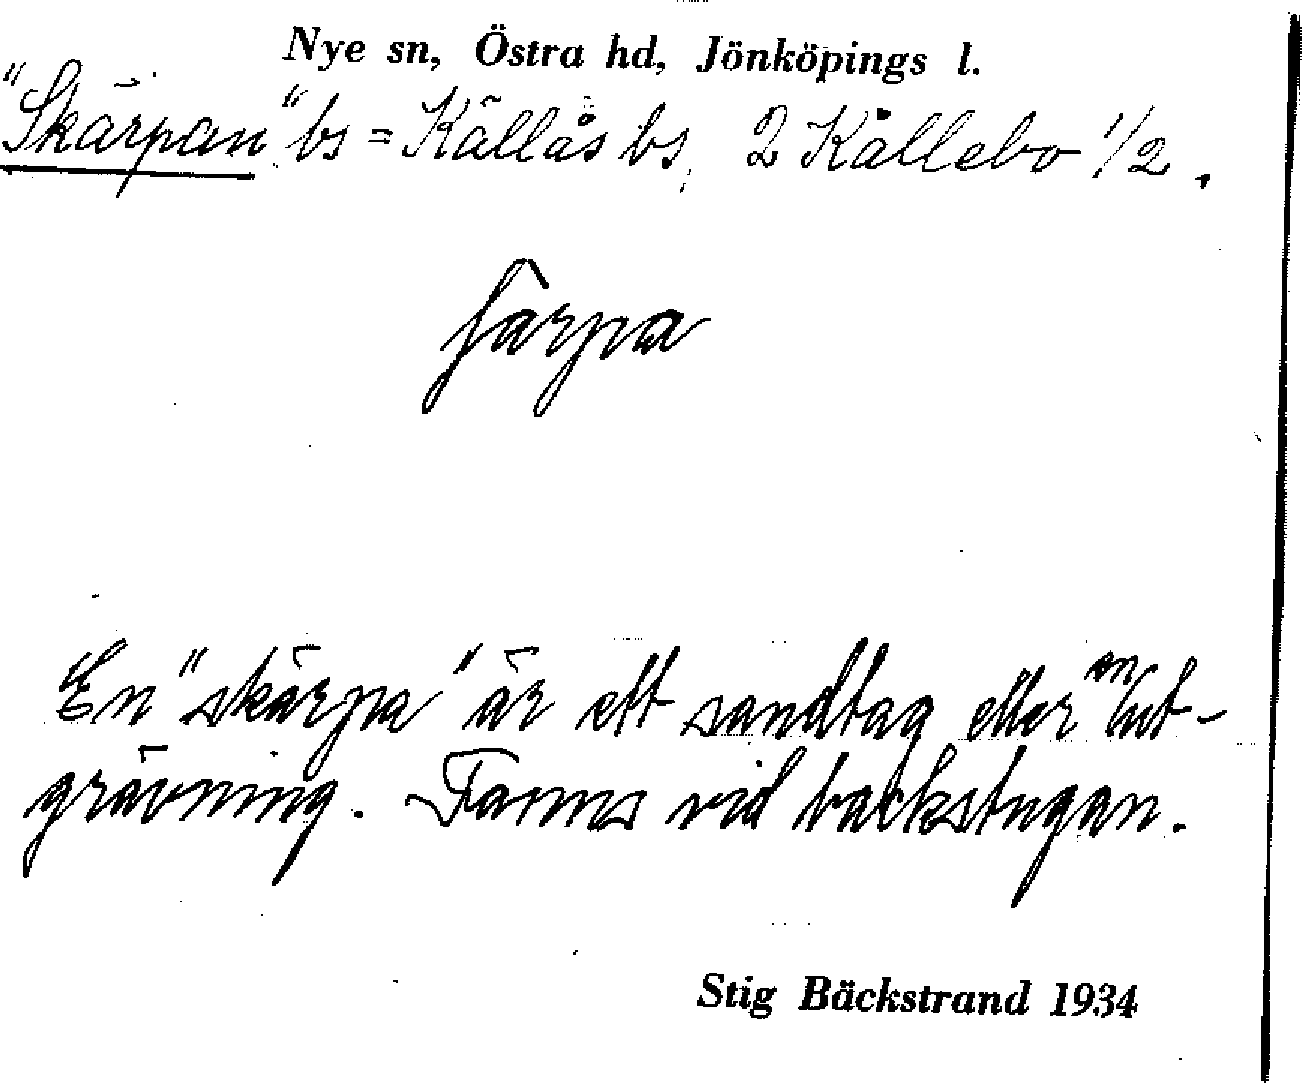 Nye sn, Östra hd, Jönköpings l.
"Skärpan" bs = Källås bs, 2 Källebo 1/2.
En "skärpa" är ett sandtag eller en ut-
grävning. Fanns vid backstugan.
Stig Bäckstrand 1934